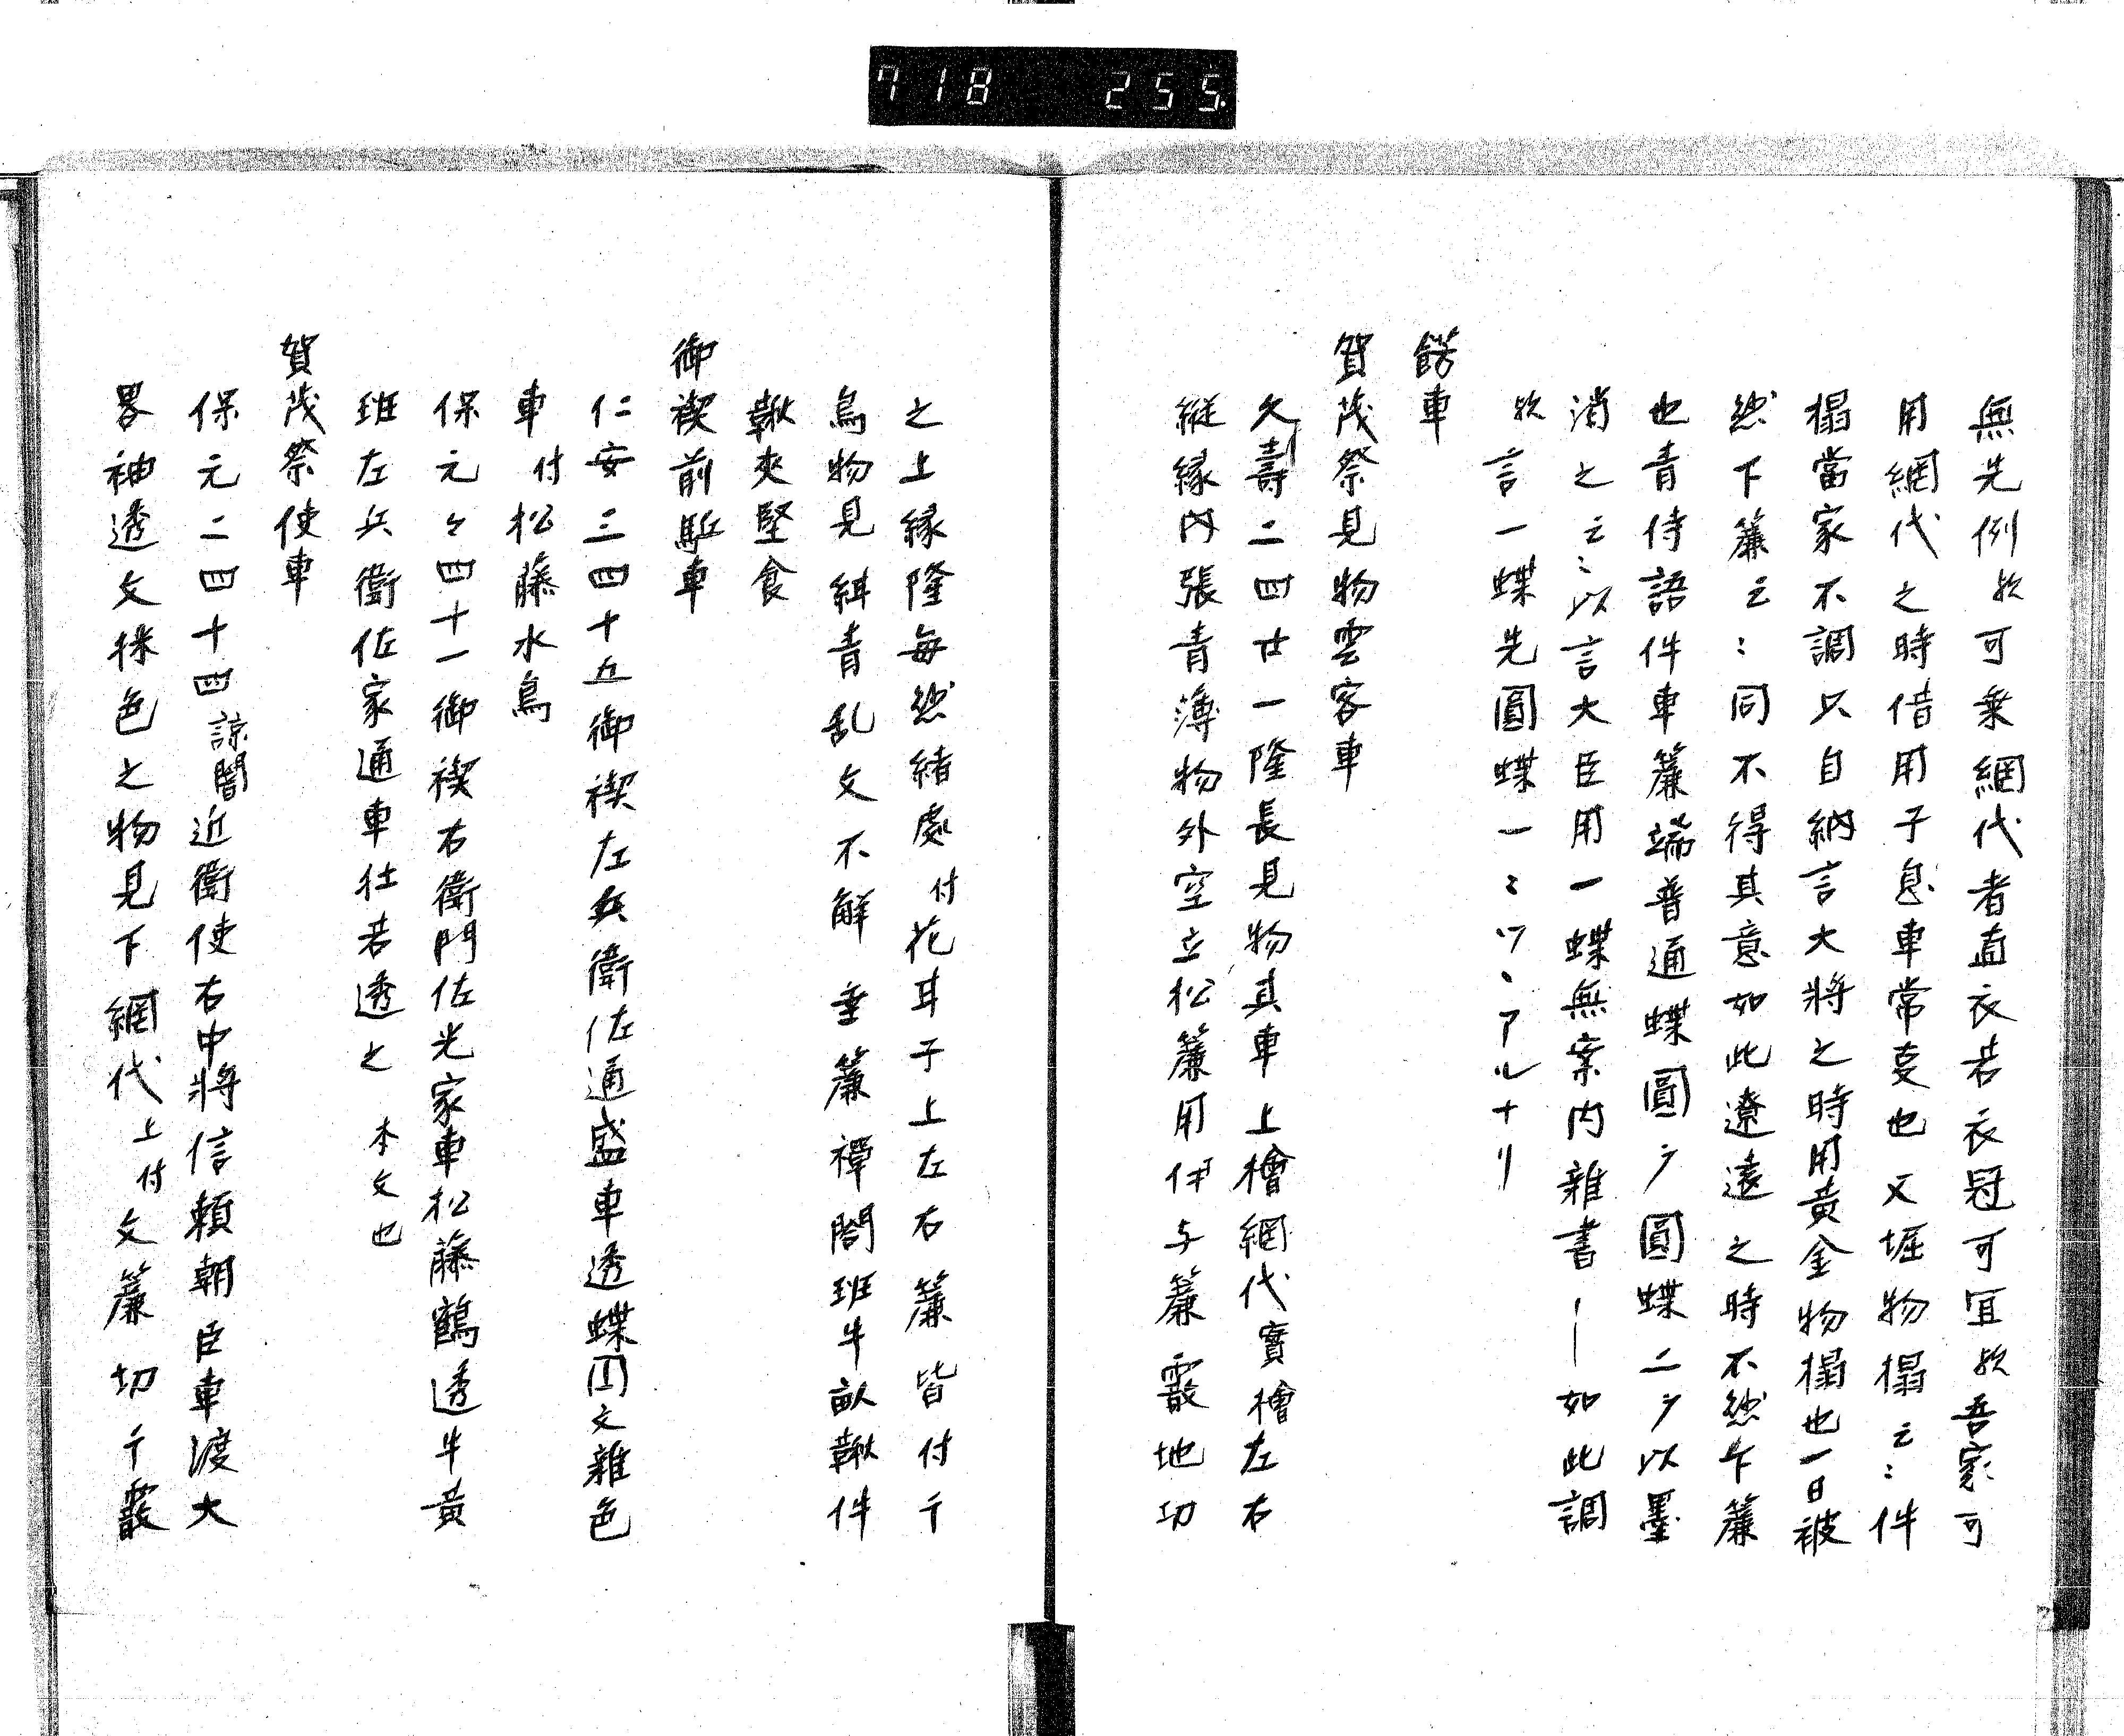 718 255.
無先例欤可乗網代者直衣若衣冠可宜欤吾家可
用網代之時借用子息車常事也又堀物榻云〻件
榻當家不調只自納言大将之時用黄金物榻也一日被
然下簾云〻同不得其意如此遼遠之時不然下簾
也青侍語件車簾端普通蝶圓ヲ圓蝶二ヲ以墨
消之云〻以言大臣用一蝶無案内雑書――如此調
欤言一蝶先圓蝶一〻ツヽアルナリ
餝車
賀茂祭見物雲客車
久壽二四廿一隆長見物其車上檜網代實檜左右
縦縁内張青薄物外空立松簾用伊与簾霰地切
之上縁隆毎然緒處付花耳子上左右簾皆付千
鳥物見緋青乱文不解垂簾禅閤班牛畝鞦件
鞦夾堅食
御禊前駈車
仁安三四十五御禊左兵衛佐通盛車透蝶円文雑色
車付松藤水鳥
保元々四十一御禊右衛門佐光家車松藤鶴透牛黄
班左兵衛佐家通車杜若透之 本文也
賀茂祭使車
保元二四十四諒闇近衛使右中将信頼朝臣車渡大
畧袖透文採色之物見下網代上付文簾切千霰